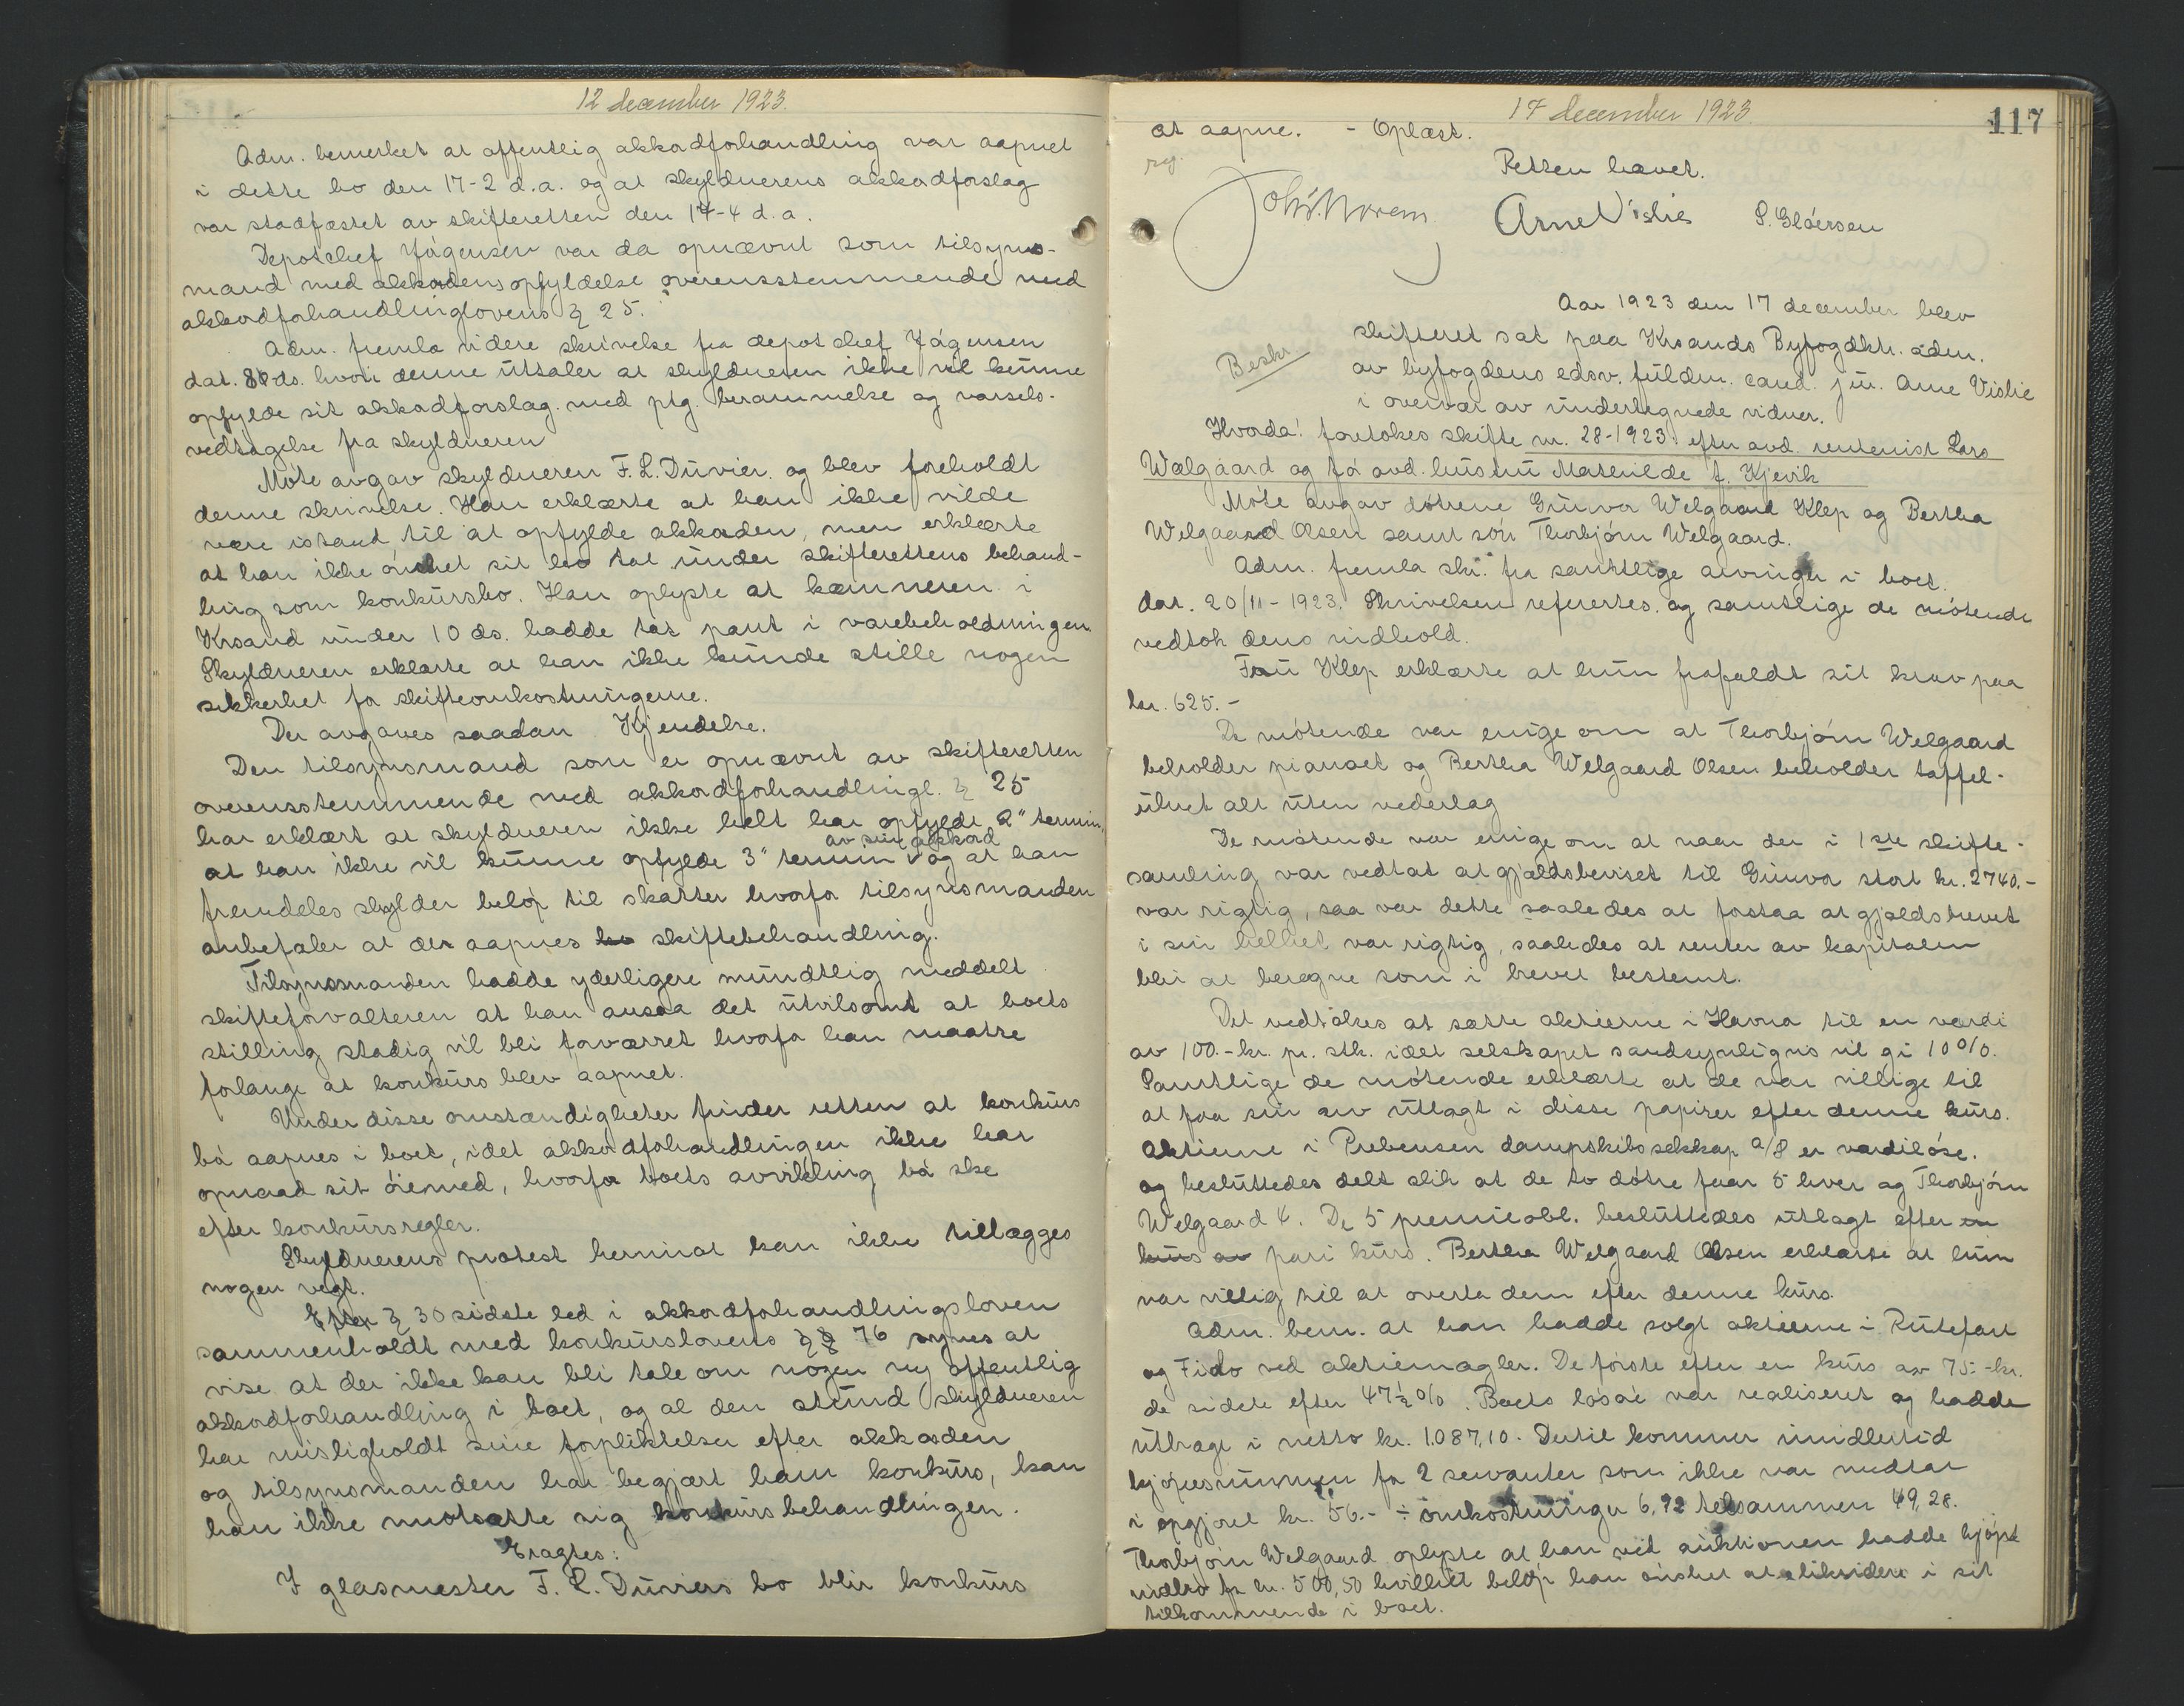 12 december 1923.
Adm. bemerket at offentlig akkordforhandling var aapnet
i dette bo den 17-2 d.a. og at skyldnerens akkordforslag
var stadfæstet av skifteretten den 17-4 d.a.
Depotchef Jørgensen var da opnævnt som tilsyns-
mand med akkordens opfyldelse overensstemmende med
akkordforhandlinglovens § 25.
Adm. fremla videre skrivelse fra depotchef Jørgensen
dat. ds. hvori denne uttaler at skyldneren ikke vil kunne
opfylde sit akkordforslag. med ptg. berammelse og varsels-
vedtagelse fra skyldneren
Møte avgav skyldneren F. L. Duvier. og blev foreholdt
denne skrivelse. Han erklærte at han ikke vilde
være istand til at opfylde akkorden, men erklærte
at han ikke ønsket sit bo tat under skifterettens behand-
ling som konkursbo. Han oplyste at kæmneren i
Krsand under 10 ds. hadde tat pant i varebeholdningen.
Skyldneren erklærte at han ikke kunde stille nogen
sikkerhet for skifteomkostningerne.
Der avgaves saadan Kjendelse.
Den tilsynsmand som er opnævnt av skifteretten
overensstemmende med akkordforhandlingl. § 25
har erklært at skyldneren ikke helt har opfyldt 2" termin,
at han ikke vil kunne opfylde 3" termin av sin akkord og at han
fremdeles skylder beløp til skatter hvorfor tilsynsmanden
anbefaler at der aapnes bo skiftebehandling.
Tilsynsmanden hadde yderligere mundtlig meddelt
skifteforvalteren at han ansaa det utvilsomt at boets
stilling stadig vil bli forværret hvorfor han maatte
forlange at konkurs blev aapnet.
Under disse omstændigheter finder retten at konkurs
bør aapnes i boet, idet akkordforhandlingen ikke har
opnaad sit øiemed, hvorfor boets avvikling bør ske
efter konkursregler.
Skyldnerens protest herimot kan ikke tillægges
nogen vegt.
Efter § 30 sidste led i akkordforhandlingsloven
sammenholdt med konkurslovens § 76 synes at
vise at der ikke kan bli tale om nogen ny offentlig
akkordforhandling i boet, og al den stund skyldneren
har misligholdt sine forpliktelser efter akkorden
og tilsynsmanden har begjært ham konkurs, kan
han ikke motsætte sig konkursbehandlingen.
Eragtes:
I glasmester F. L. Duviers bo blir konkurs
17 december 1923.
117
at aapne. - Oplæst.
Retten hævet.
Arne Vislie
Aar 1923 den 17 december blev
skifteret sat paa Krsands Byfogdktr. adm.
Beskr
av byfogdens edsv. fuldm. cand. jur. Arne Vislie
i overvær av undertegnede vidner.
Hvorda! foretokes skifte nr. 28-1923 efter avd. rentenist Lars
Wælgaard og før avd. hustru Mathilde f. Kjevik
Møte avgav døtrene Gunvor Welgaard Klep og Bertha
Welgaard Olsen samt søn Thorbjørn Welgaard.
Adm. fremla skr. fra samtlige arvinger i boet.
dat. 20/11-1923. Skrivelsen refertes. og samtlige de møtende
vedtok dens indhold.
Fru Klep erklærte at hun frafaldt sit krav paa
kr. 625.-
De møtende var enige om at Thorbjørn Welgaard
beholder pianoet og Bertha Welgaard Olsen beholder taffel-
uhret alt uten vederlag
De møtende var enige om at naar der i 1ste skifte-
samling var vedtat at gjældsbeviset til Gunvor stort kr. 2740.-
var rigtig, saa var dette saaledes at forstaa at gjældsbrevet
i sin helhet var rigtig, saaledes at renter av kapitalen
blir at beregne som i brevet bestemt.
Det vedtokes at sætte aktierne i Havna til en værdi
av 100.- kr. pr. stk. idet selskapet sandsynligvis vil gi 10%.
Samtlige de møtende erklærte at de var villige til
at faa sin arv utlagt i disse papirer efter denne kurs.
Aktierne i Prebensen dampskibsselskap a/s er værdiløse.
og besluttedes delt slik at de to døtre faar 5 hver og Thorbjørn
Welgaard 4. De 5 premieobl. besluttedes utlagt efter en
kurs av pari kurs. Bertha Welgaard Olsen erklærte at hun
var villig til at overta dem efter denne kurs.
Adm. bem. at han hadde solgt aktierne i Rutefart
og Fido ved aktiemægler. De første efter en kurs av 75.- kr.
de sidste efter 47½%. Boets løsøre var realiseret og hadde
utbragt i netto kr. 1.087,10. Dertil kommer imidlertid
kjøpesummen for 2 servanter som ikke var medtat
i opgjøret kr. 56.- ÷ omkostninger 6,72 tilsammen 49,28.
Thorbjørn Welgaard oplyste at han ved auktionen hadde kjøpt
indbo for kr. 500,50 hvilket beløp han ønsket at likvidere i sit
tilkommende i boet.